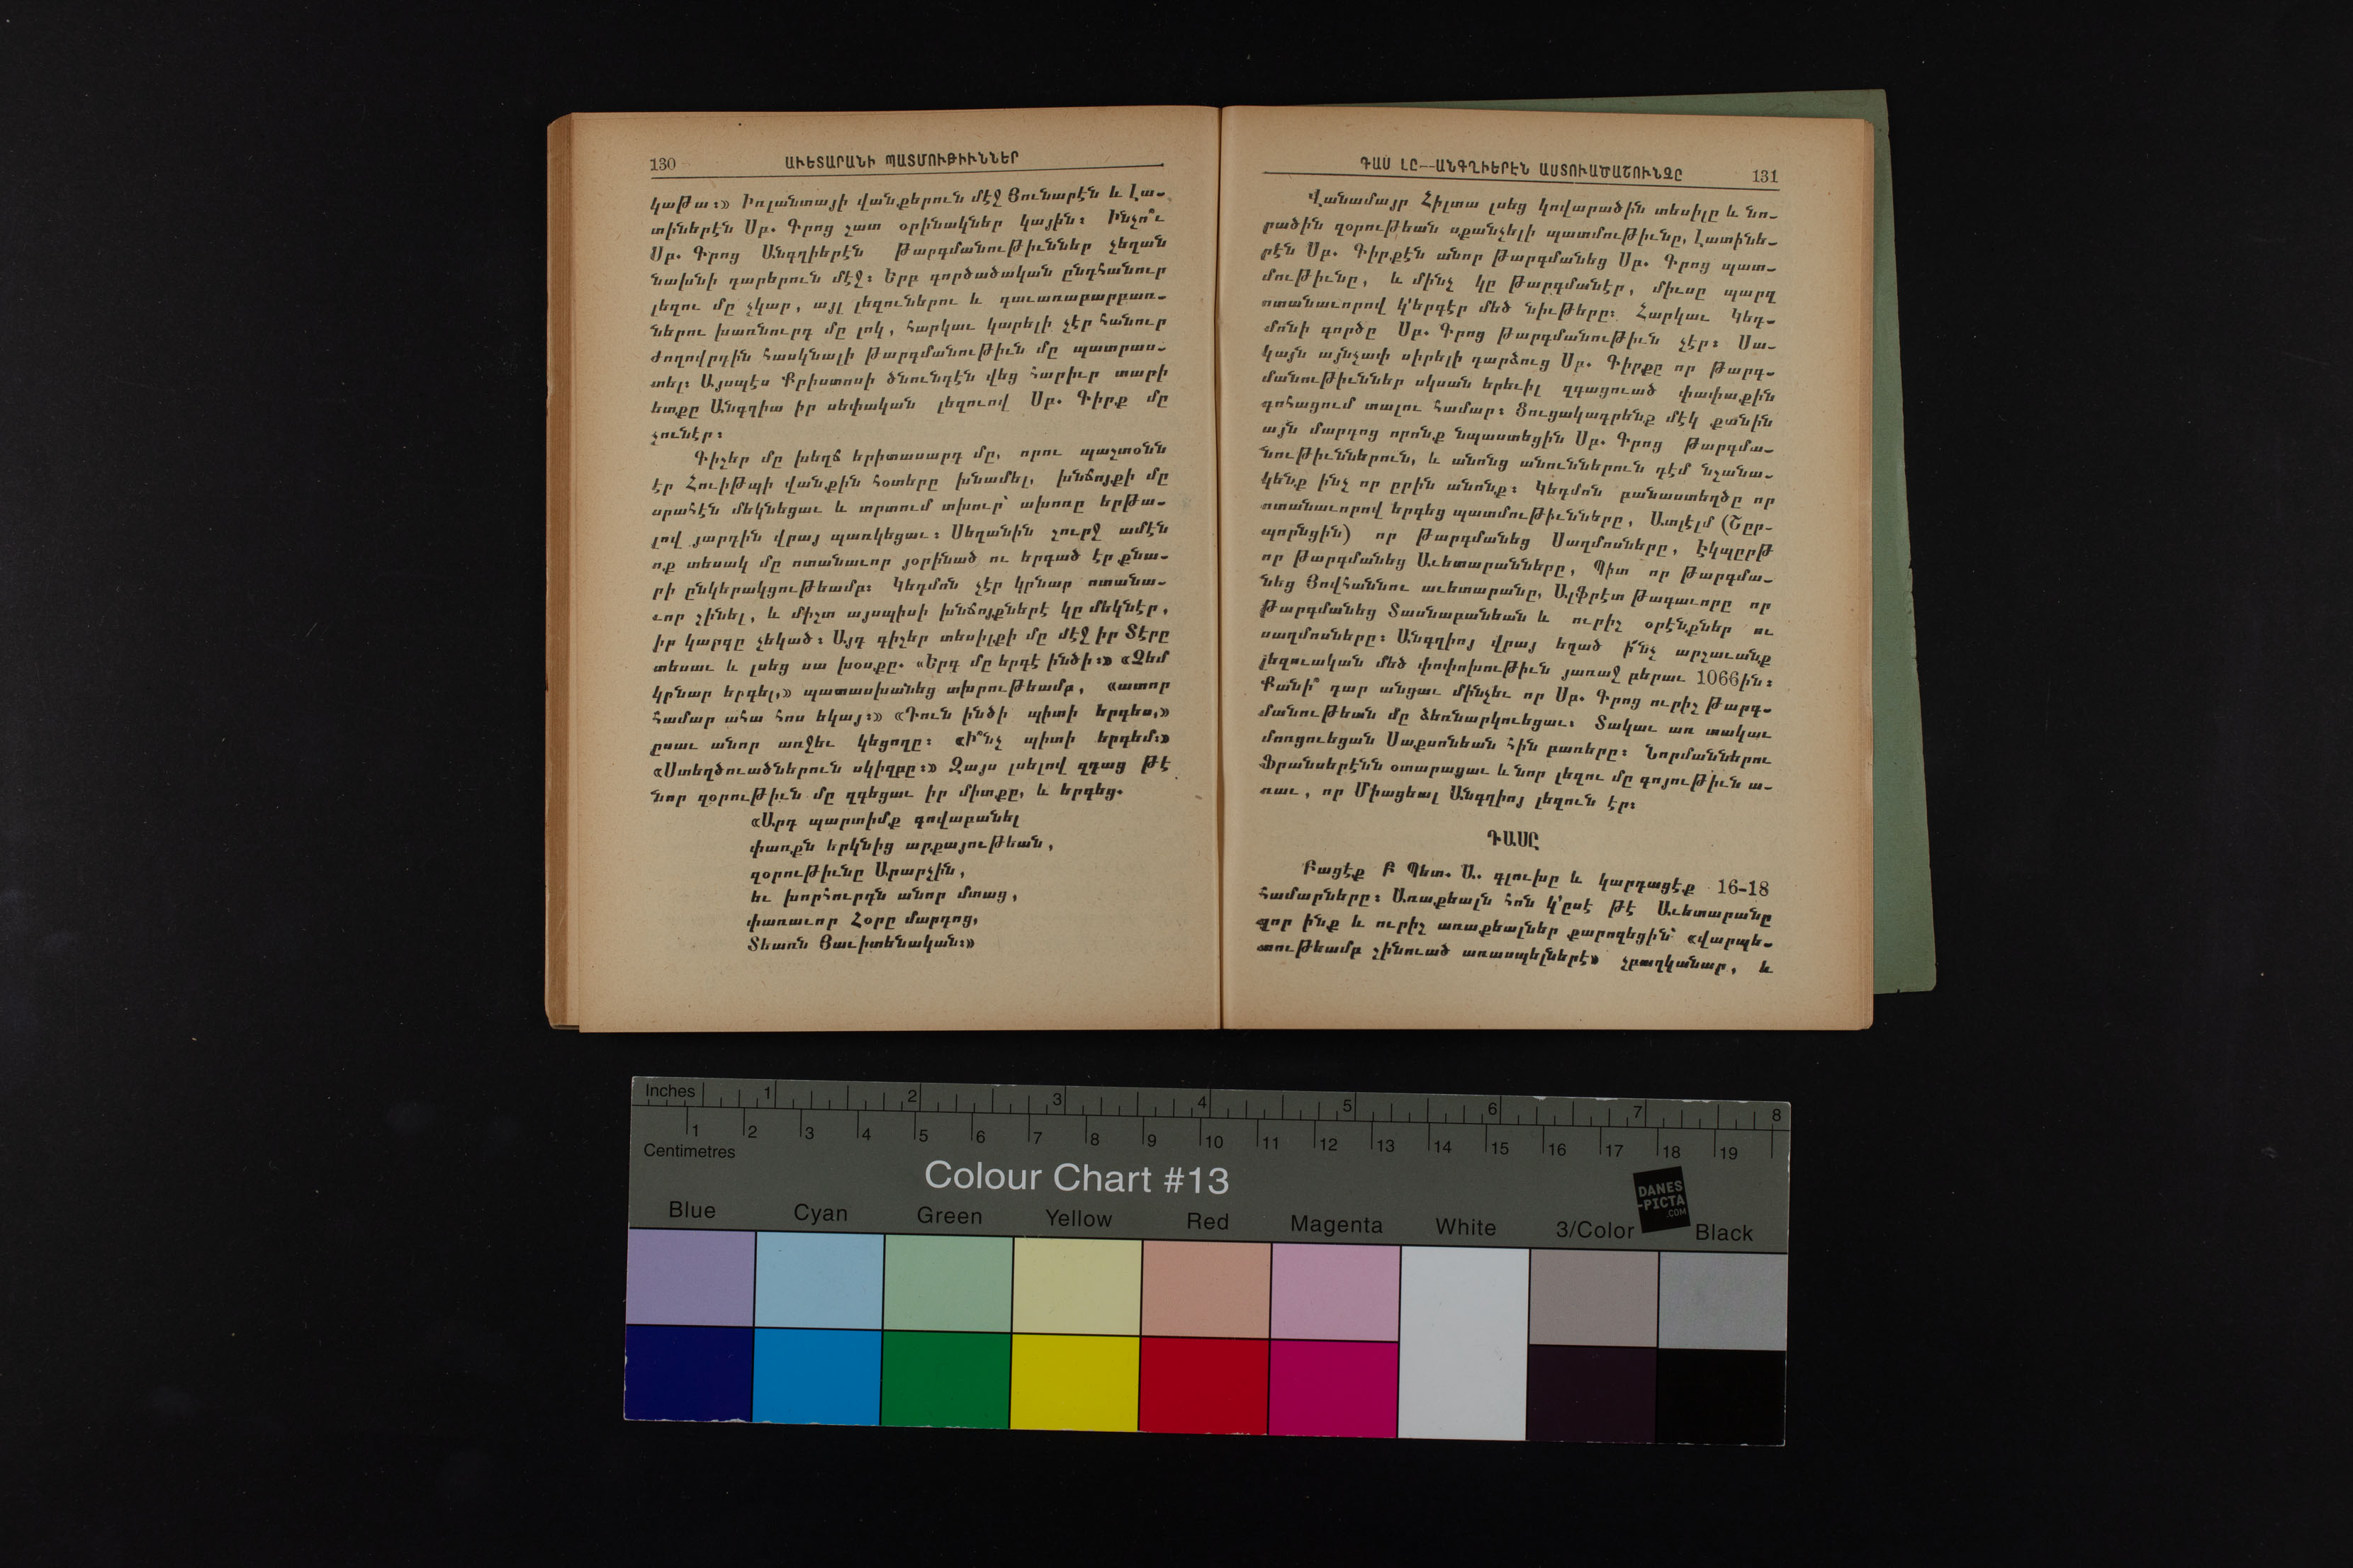 130
ԱՒԵՏԱՐԱՆԻ ՊԱՏՄՈՒԹԻՒՆՆԵՐ
կաթա։» Իռլանտայի վանքերուն մէջ Յունարէն և Լա-
տիներէն Սբ. Գրոց շատ օրինակներ կային։ Ինչո՞ւ
Սբ. Գրոց Անգղիերէն թարգմանութիւններ չեղան
նախնի դարերուն մէջ։ Երբ գործածական ընդհանուր
լեզու մը չկար, այլ լեզուներու և գաւառաբարբառ-
ներու խառնուրդ մը լոկ, հարկաւ կարելի չէր հանուր
ժողովրդին հասկնալի թարգմանութիւն մը պատրաս-
տել։ Այսպէս Քրիստոսի ծնունդէն վեց հարիւր տարի
ետքը Անգղիա իր սեփական լեզուով Սբ. Գիրք մը
չունէր։
Գիշեր մը խեղճ երիտասարդ մը, որու պաշտօնն
էր Հուիթպի վանքին հօտերը խնամել, խնճոյքի մը
սրահէն մեկնեցաւ և տրտում տխուր՝ ախոռը երթա-
լով յարդին վրայ պառկեցաւ։ Սեղանին շուրջ ամէն
ոք տեսակ մը ոտանաւոր յօրինած ու երգած էր քնա-
րի ընկերակցութեամբ։ Կեդմոն չէր կրնար ոտանա-
ւոր շինել, և միշտ այսպիսի խնճոյքներէ կը մեկնէր,
իր կարգը չեկած։ Այդ գիշեր տեսիլքի մը մէջ իր Տէրը
տեսաւ և լսեց սա խօսքը. «Երգ մը երգէ ինծի։» «Չեմ
կրնար երգել,» պատասխանեց տխրութեամբ, «ատոր
համար ահա հոս եկայ։» «Դուն ինծի պիտի երգես,»
ըսաւ անոր առջեւ կեցողը։ «Ի՞նչ պիտի երգեմ։»
«Ստեղծուածներուն սկիզբը։» Զայս լսելով զգաց թէ
նոր զօրութիւն մը զգեցաւ իր միտքը, և երգեց.
«Արդ պարտիմք գովաբանել
փառքն երկնից արքայութեան,
զօրութիւնը Արարչին,
եւ խորհուրդն անոր մտաց,
փառաւոր Հօրը մարդոց,
Տեառն Յաւիտենական։»
ԴԱՍ ԼԸ—ԱՆԳՂԻԵՐԷՆ ԱՍՏՈՒԱԾԱՇՈՒՆՉԸ
131
Վանամայր Հիլտա լսեց կովարածին տեսիլը և նո-
րածին զօրութեան սքանչելի պատմութիւնը, Լատինե-
րէն Սբ. Գիրքէն անոր թարգմանեց Սբ. Գրոց պատ-
մութիւնը, և մինչ կը թարգմանէր, միւսը պարզ
ոտանաւորով կ՚երգէր մեծ նիւթերը։ Հարկաւ Կեդ-
մոնի գործը Սբ. Գրոց թարգմանութիւն չէր։ Սա-
կայն այնչափ սիրելի դարձուց Սբ. Գիրքը որ թարգ-
մանութիւններ սկսան երեւիլ զգացուած փափաքին
գոհացում տալու համար։ Ցուցակագրենք մէկ քանին
այն մարդոց որոնք նպաստեցին Սբ. Գրոց թարգմա-
նութիւններուն, և անոնց անուններուն դէմ նշանա-
կենք ինչ որ ըրին անոնք։ Կեդմոն բանաստեղծը որ
ոտանաւորով երգեց պատմութիւնները, Ատլէլմ (Շըր-
պորնցին) որ թարգմանեց Սաղմոսները, Էկպըրթ
որ թարգմանեց Աւետարանները, Պիտ որ թարգմա-
նեց Յովհաննու աւետարանը, Ալֆրէտ թագաւորը որ
թարգմանեց Տասնաբանեան և ուրիշ օրէնքներ ու
սաղմոսները։ Անգղիոյ վրայ եղած ի՞նչ արշաւանք
լեզուական մեծ փոփոխութիւն յառաջ բերաւ 1066ին։
Քանի՞ դար անցաւ մինչեւ որ Սբ. Գրոց ուրիշ թարգ-
մանութեան մը ձեռնարկուեցաւ։ Տակաւ առ տակաւ
մոռցուեցան Սաքսոնեան հին բառերը։ Նորմաններու
Ֆրանսերէնն օտարացաւ և նոր լեզու մը գոյութիւն ա-
ռաւ, որ Միացեալ Անգղիոյ լեզուն էր։
ԴԱՍԸ
Բացէք Բ Պետ. Ա. գլուխը և կարդացէք 16-18
համարները։ Առաքեալն հոն կ՚ըսէ թէ Աւետարանը
զոր ինք և ուրիշ առաքեալներ քարոզեցին՝ «վարպե-
տութեամբ շինուած առասպելներէ» չբաղկանար, և
Inches 1 2 3 4 5 6 7 8
1 2 3 4 5 6 7 8 9 10 11 12 13 14 15 16 17 18 19
Centimetres
Colour Chart #13
DANES
-PICTA
.COM
Blue Cyan Green Yellow Red Magenta White 3/Color Black